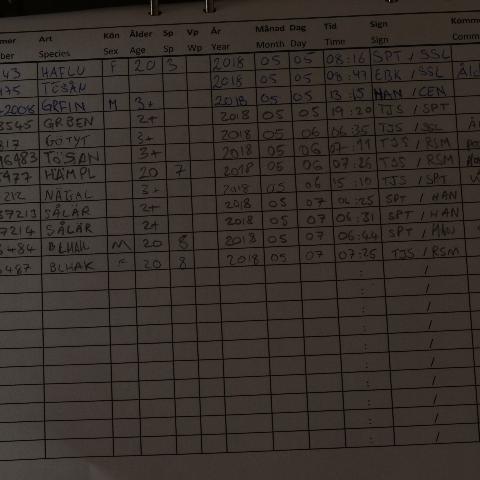 mer Art Kön Ålder Sp Vp År Månad Dag Tid Sign Komme
ber Species Sex Age Sp Wp Year Month Day Sign Comm
43 HAFLU F 20 3 2018 05 05 08:16 SPT / SSL
475 TOSÅN 2018 05 05 08:47 EBK / SSL
-2008 GRFIN M 3+ 2018 05 05 13:15 HAN / CEN
8545 GRBEN 2+ 2018 05 05 19:20 TJS / SPT
817 GÖTYT 3+ 2018 05 06 06:35 TJS / SSL
96483 TOSÅN 3+ 2018 05 06 07:11 TJS / RSM
477 HÄMPL 20 7 2018 05 06 07:26 TJS / RSM
212 NÄGAL 3+ 2018 05 06 15:10 TJS / SPT
37213 SÅLÄR 2+ 2018 05 07 06:25 SPT / HAN
37214 SÅLÄR 2+ 2018 05 07 06:31 SPT / HAN
484 BLHAK M 20 8 2018 05 07 06:44 SPT / HAN
487 BLHAK 20 8 2018 05 07 07:25 TJS / RSM